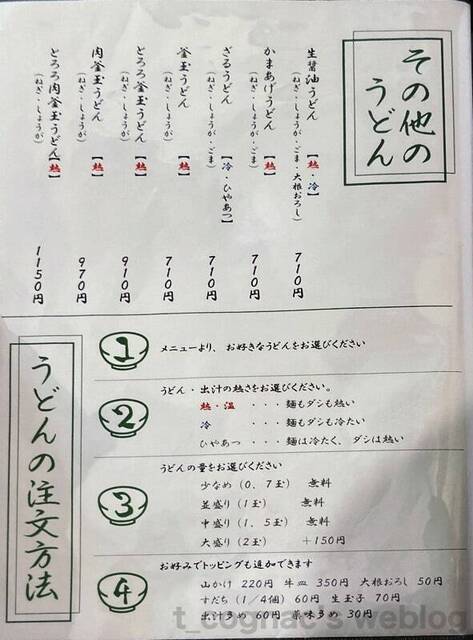 その他の
うどん
生醤油うどん 【熱・冷】 710円
(ねぎ・しょうが・ごま・大根おろし)
かまあげうどん 【熱】 710円
(ねぎ・しょうが・ごま)
ざるうどん 【冷・ひやあつ】 710円
(ねぎ・しょうが・ごま)
釜玉うどん 【熱】 710円
(ねぎ・しょうが)
とろろ釜玉うどん 【熱】 910円
(ねぎ・しょうが)
肉釜玉うどん 【熱】 970円
(ねぎ・しょうが)
とろろ肉釜玉うどん 【熱】 1150円
(ねぎ・しょうが)
うどんの注文方法
1 メニューより、お好きなうどんをお選びください
2 うどん・出汁の熱さをお選びください。
熱・温 ・・・麺もダシも熱い
冷 ・・・麺もダシも冷たい
ひやあつ ・・・麺は冷たく、ダシは熱い
3 うどんの量をお選びください
少なめ(0.7玉) 無料
並盛り(1玉) 無料
中盛り(1.5玉) 無料
大盛り(2玉) +150円
4 お好みでトッピングも追加できます
山かけ 220円 牛皿 350円 大根おろし 50円
すだち(1/4個) 60円 生玉子 70円
出汁多め 60円 薬味多め 30円
t_cognac's weblog